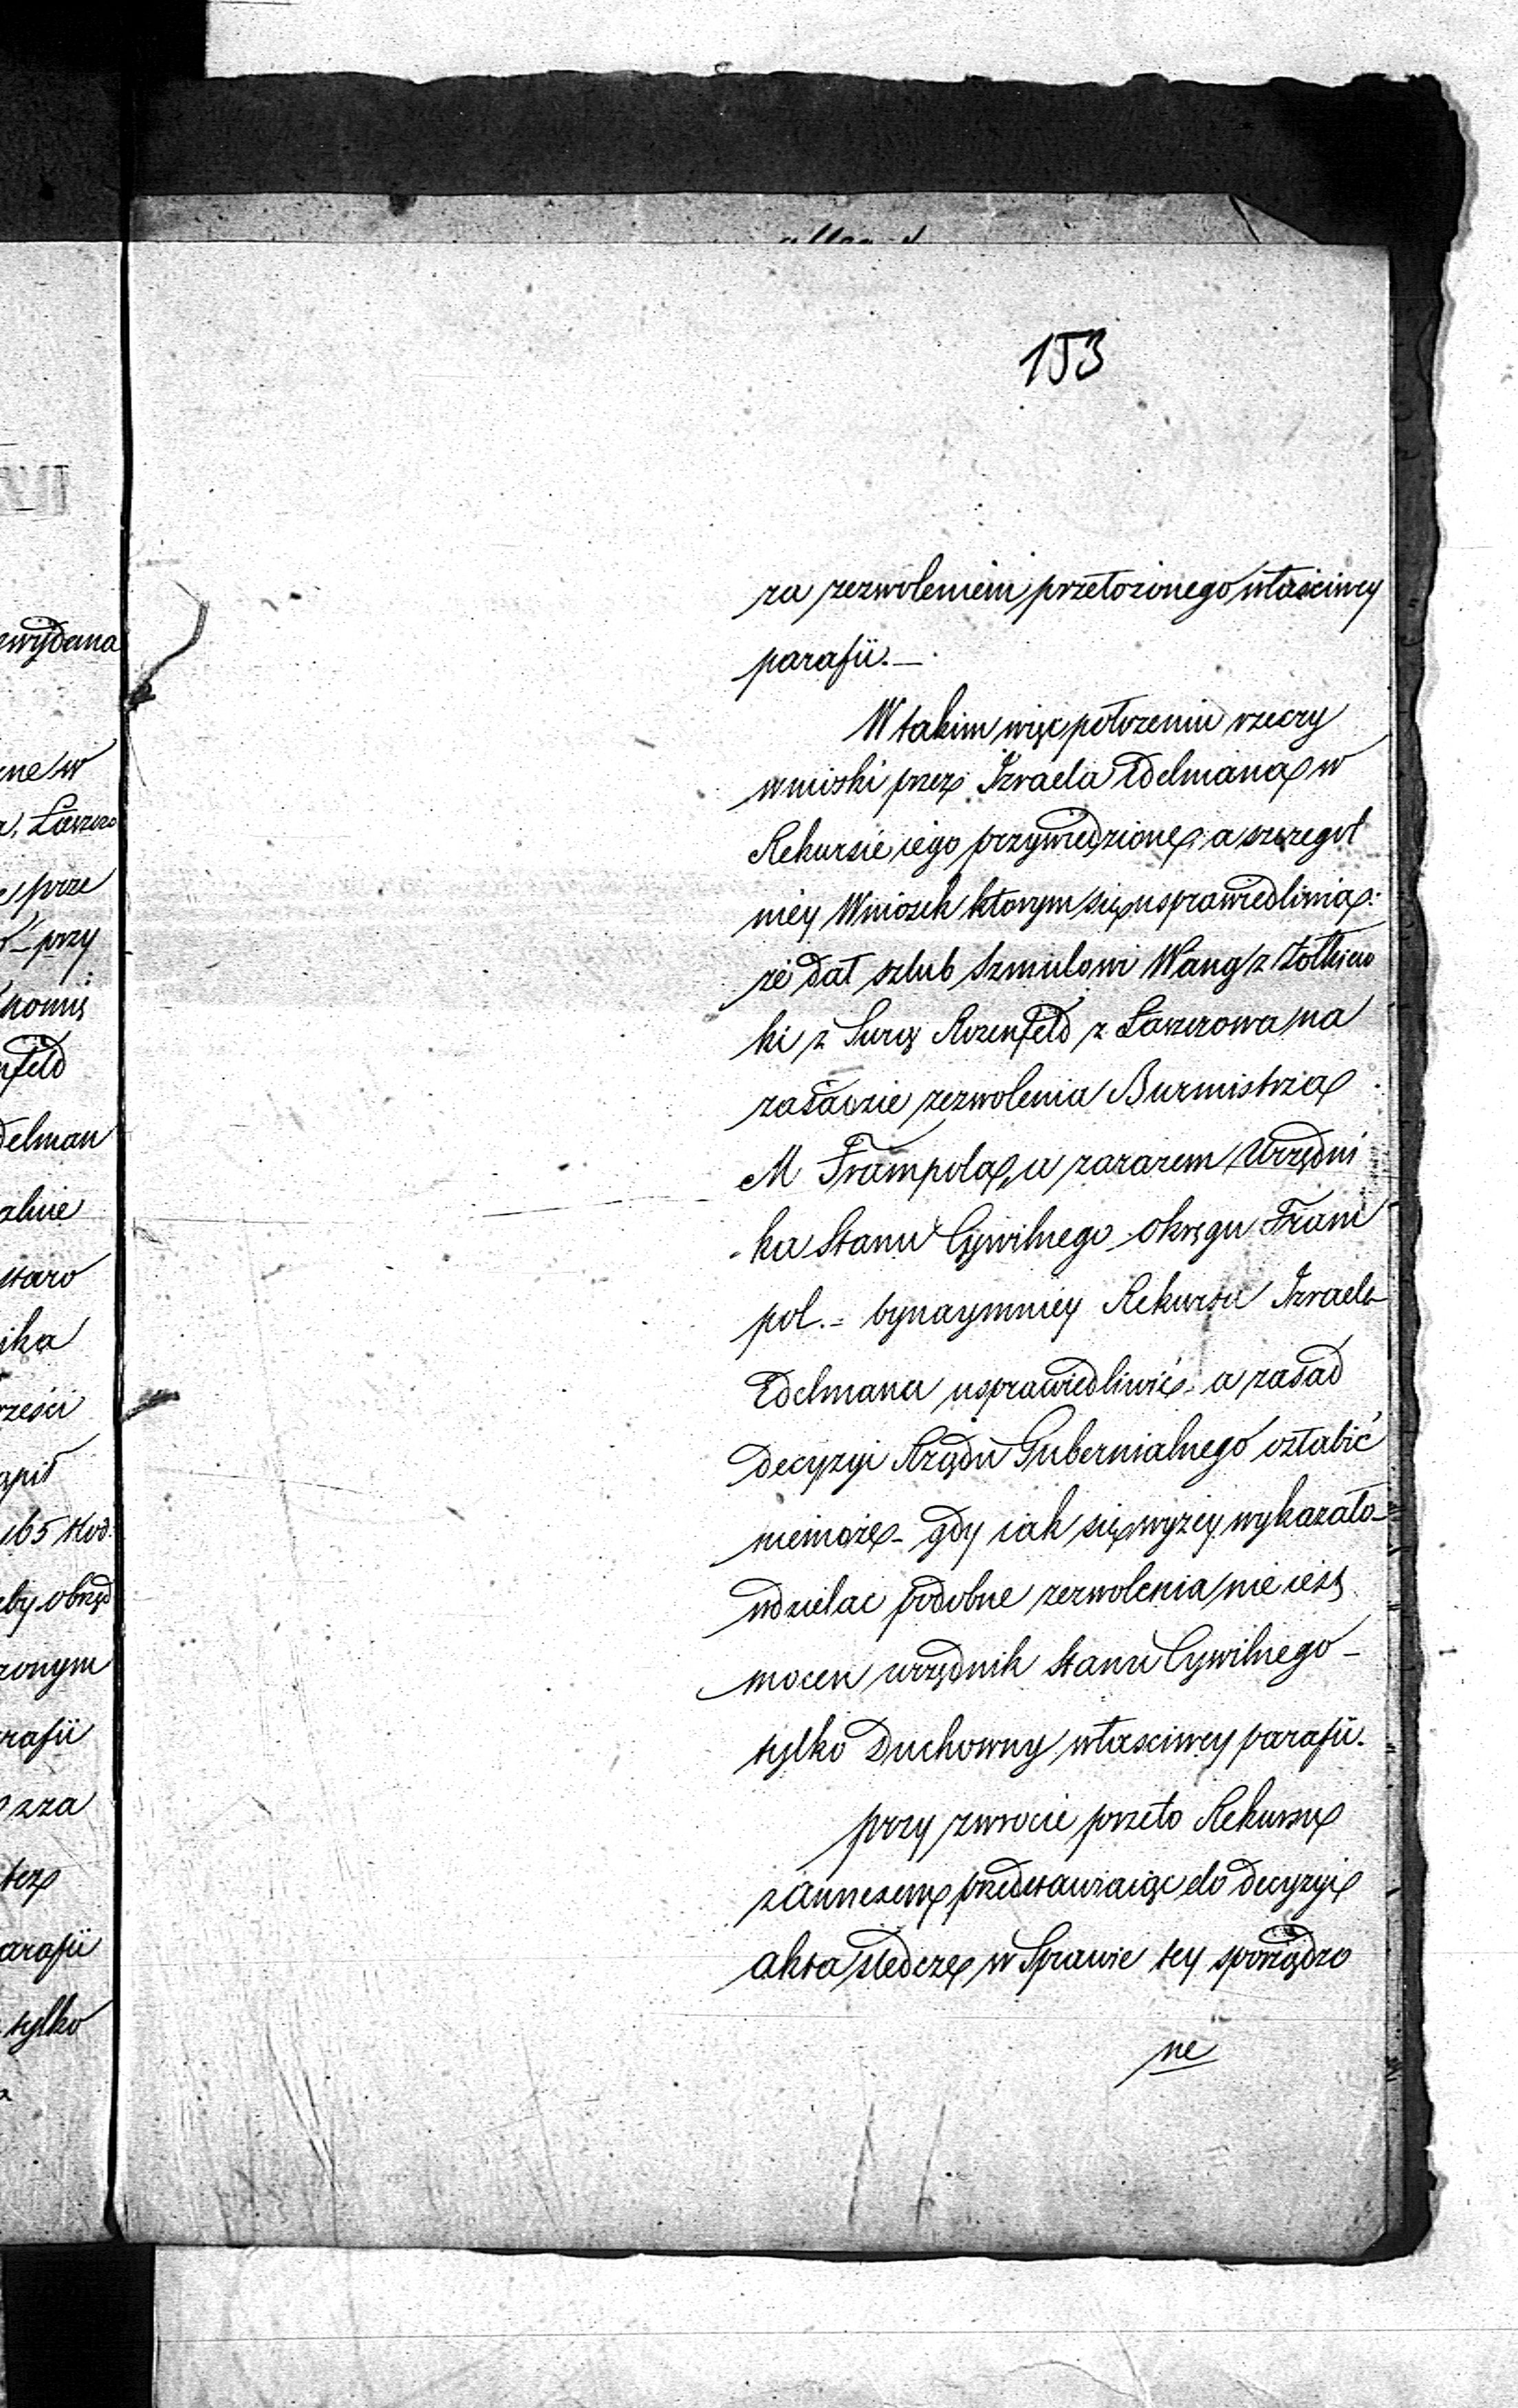 153
za zezwoleniem przełożonego właściwey
parafii. —
W takim więc położeniu rzeczy
wnioski przez Izraela Edelmana w
Rekursie iego przywiedzione, a szczegól
niey Wniosek którym się usprawiedliwia:
że dał szlub Szmulowi Wang z Żołkiew
ki z Surą Rozenfeld z Łaszczowa na
zasadzie zezwolenia Burmistrza
M Frampola, a zarazem Urzędni
ka Stanu Cywilnego okręgu Fram
pol. = bynaymniey Rekursu Izraela
Edelmana usprawiedliwić, a zasad
Decyzyi Rządu Gubernialnego osłabić
niemoże – gdy iak się wyżey wykazało –
udzielac podobne zezwolenia nie iest
mocen urzędnik Stanu Cywilnego –
tylko Duchowny własciwey parafii.
przy zwrocie przeto Rekursu
z Annexem przedstawiaiąc do Decyzyi
akta śledcze w Sprawie tey sporządzo
ne
ewydana
ne w
a, Łaszczo
prze
przy
nfeld
delman
alnie
staro
ika
rześci
ąpił
165 Kod.
eby obrzęd
zonym
rafii
zza
też
arafii
tylko